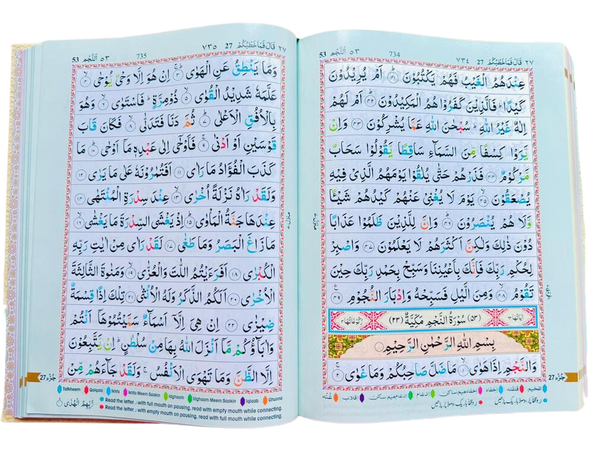 ٢٧ قال فما خطبكم 27 ٧٣٤ 734 ٥٣ النجم 53
عِنْدَهُمُ الْغَيْبُ فَهُمْ يَكْتُبُوْنَ اَمْ يُرِيْدُوْنَ
كَيْدًا فَالَّذِيْنَ كَفَرُوْا هُمُ الْمَكِيْدُوْنَ اَمْ لَهُمْ
اِلٰهٌ غَيْرُ اللّٰهِ سُبْحٰنَ اللّٰهِ عَمَّا يُشْرِكُوْنَ وَاِنْ
يَّرَوْا كِسْفًا مِّنَ السَّمَآءِ سَاقِطًا يَّقُوْلُوْا سَحَابٌ
مَّرْكُوْمٌ فَذَرْهُمْ حَتّٰى يُلٰقُوْا يَوْمَهُمُ الَّذِيْ فِيْهِ
يُصْعَقُوْنَ يَوْمَ لَا يُغْنِيْ عَنْهُمْ كَيْدُهُمْ شَيْـًٔا
وَّلَا هُمْ يُنْصَرُوْنَ وَاِنَّ لِلَّذِيْنَ ظَلَمُوْا عَذَابًا
دُوْنَ ذٰلِكَ وَلٰكِنَّ اَكْثَرَهُمْ لَا يَعْلَمُوْنَ وَاصْبِرْ
لِحُكْمِ رَبِّكَ فَاِنَّكَ بِاَعْيُنِنَا وَسَبِّحْ بِحَمْدِ رَبِّكَ حِيْنَ
تَقُوْمُ وَمِنَ الَّيْلِ فَسَبِّحْهُ وَاِدْبَارَ النُّجُوْمِ
(٥٣) سُوْرَةُ النَّجْمِ مَكِّيَّةٌ (٢٣)
بِسْمِ اللّٰهِ الرَّحْمٰنِ الرَّحِيْمِ
وَالنَّجْمِ اِذَا هَوٰى مَا ضَلَّ صَاحِبُكُمْ وَمَا غَوٰى
27 جزء
٢٧ قال فما خطبكم 27 ٧٣٥ 735 ٥٣ النجم 53
وَمَا يَنْطِقُ عَنِ الْهَوٰى اِنْ هُوَ اِلَّا وَحْيٌ يُّوْحٰى
عَلَّمَهٗ شَدِيْدُ الْقُوٰى ذُوْ مِرَّةٍ فَاسْتَوٰى وَهُوَ
بِالْاُفُقِ الْاَعْلٰى ثُمَّ دَنَا فَتَدَلّٰى فَكَانَ قَابَ
قَوْسَيْنِ اَوْ اَدْنٰى فَاَوْحٰى اِلٰى عَبْدِهٖ مَا اَوْحٰى مَا
كَذَبَ الْفُؤَادُ مَا رَاٰى اَفَتُمٰرُوْنَهٗ عَلٰى مَا يَرٰى
وَلَقَدْ رَاٰهُ نَزْلَةً اُخْرٰى عِنْدَ سِدْرَةِ الْمُنْتَهٰى
عِنْدَهَا جَنَّةُ الْمَاْوٰى اِذْ يَغْشَى السِّدْرَةَ مَا يَغْشٰى
مَا زَاغَ الْبَصَرُ وَمَا طَغٰى لَقَدْ رَاٰى مِنْ اٰيٰتِ رَبِّهِ
الْكُبْرٰى اَفَرَءَيْتُمُ اللّٰتَ وَالْعُزّٰى وَمَنٰوةَ الثَّالِثَةَ
الْاُخْرٰى اَلَكُمُ الذَّكَرُ وَلَهُ الْاُنْثٰى تِلْكَ اِذًا قِسْمَةٌ
ضِيْزٰى اِنْ هِيَ اِلَّا اَسْمَآءٌ سَمَّيْتُمُوْهَا اَنْتُمْ
وَاٰبَآؤُكُمْ مَّا اَنْزَلَ اللّٰهُ بِهَا مِنْ سُلْطٰنٍ اِنْ يَّتَّبِعُوْنَ
اِلَّا الظَّنَّ وَمَا تَهْوَى الْاَنْفُسُ وَلَقَدْ جَآءَهُمْ مِّنْ
رَّبِّهِمُ الْهُدٰى
27 جزء
Tafkheem Qalqala Ikhfa Meem Saakin Idgham Idgham Meem Saakin Iqlaab Ghunna
Read the letter, with full mouth on pausing, read with empty mouth while connecting.
Read the letter, with empty mouth on pausing, read with full mouth while connecting.